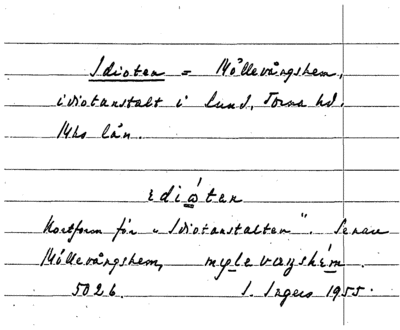 Idioten = Möllevångshem,
idiotanstalt i Lund, Torna hd.
Mhs län.
idió̱ten
Kortform för "Idiotanstalten". Senare
Möllevångshem, mylevaŋshém.
5026. I. Ingers 1955.